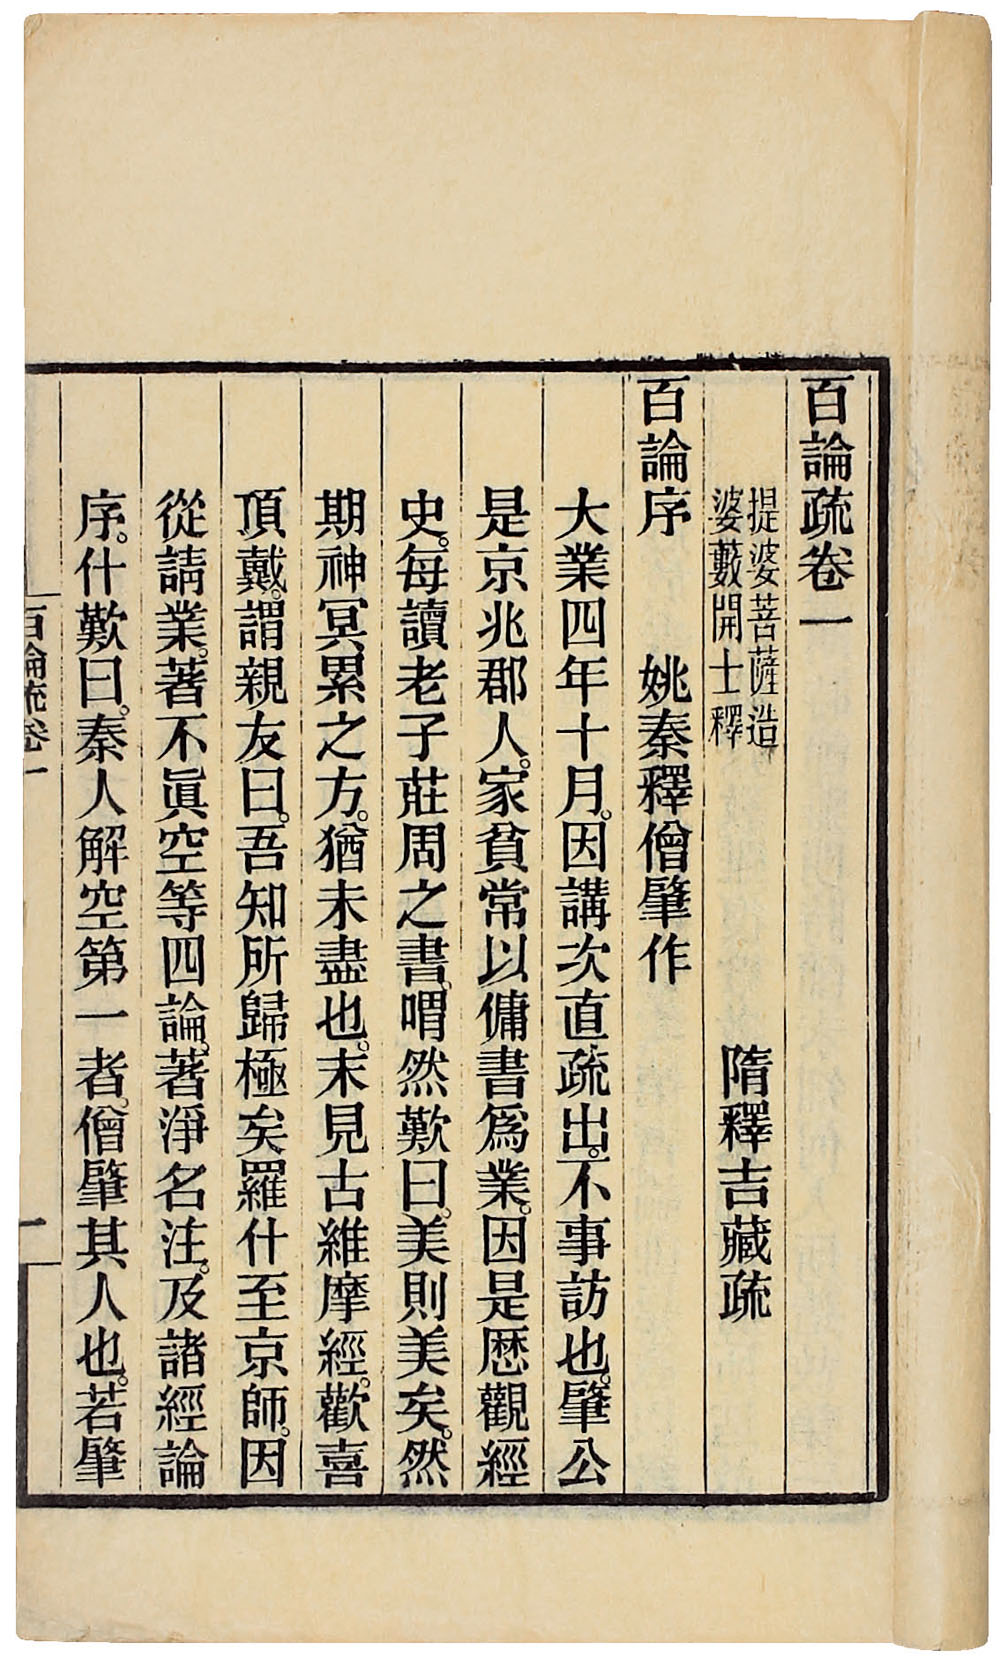 百論疏卷一
提婆菩薩造
婆藪開士釋
隋釋吉藏疏
百論序　姚秦釋僧肇作
大業四年十月。因講次直疏出。不事訪也。肇公
是京兆郡人。家貧常以傭書爲業。因是歷觀經
史。每讀老子莊周之書。喟然歎曰。美則美矣。然
期神冥累之方。猶未盡也。末見古維摩經。歡喜
頂戴。謂親友曰。吾知所歸極矣。羅什至京師。因
從請業。著不眞空等四論。著淨名注。及諸經論
序。什歎曰。秦人解空第一者。僧肇其人也。若肇
百論疏卷一
一